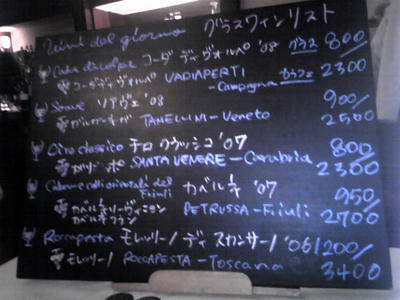 Vini del giorno グラスワインリスト
Coda di volpe コーダ ディ ヴォルペ '08 グラス 800/
コーダディヴォルペ VADIAPERTI -Campagna カラフェ 2300
Soave ソアヴェ '08 900/
ガルガーネガ TAMELLINI-Veneto 2500
Ciro classico チロ クラッシコ '07 800/
ガリオッポ SANTA VENERE-Carabria 2300
Cabernet colli orientali del Friuli カベルネ '07 950/
カベルネソーヴィニヨン カベルネフラン PETRUSSA-Friuli 2700
Roccapesta モレッリーノ ディ スカンサーノ '06 1200/
モレッリーノ ROCCAPESTA-Toscana 3400